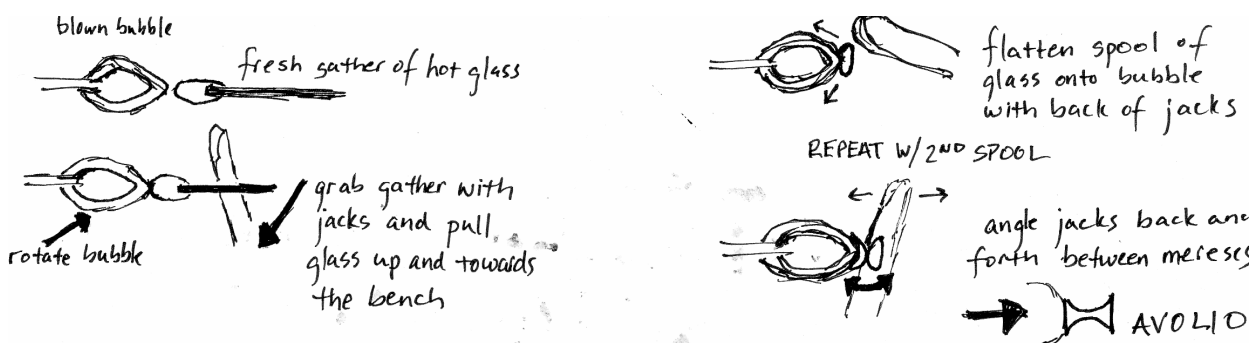 blown bubble
fresh gather of hot glass
grab gather with
jacks and pull
glass up and towards
the bench
rotate bubble
flatten spool of
glass onto bubble
with back of jacks
REPEAT W/ 2ND SPOOL
angle jacks back and
forth between mereses
AVOLIO